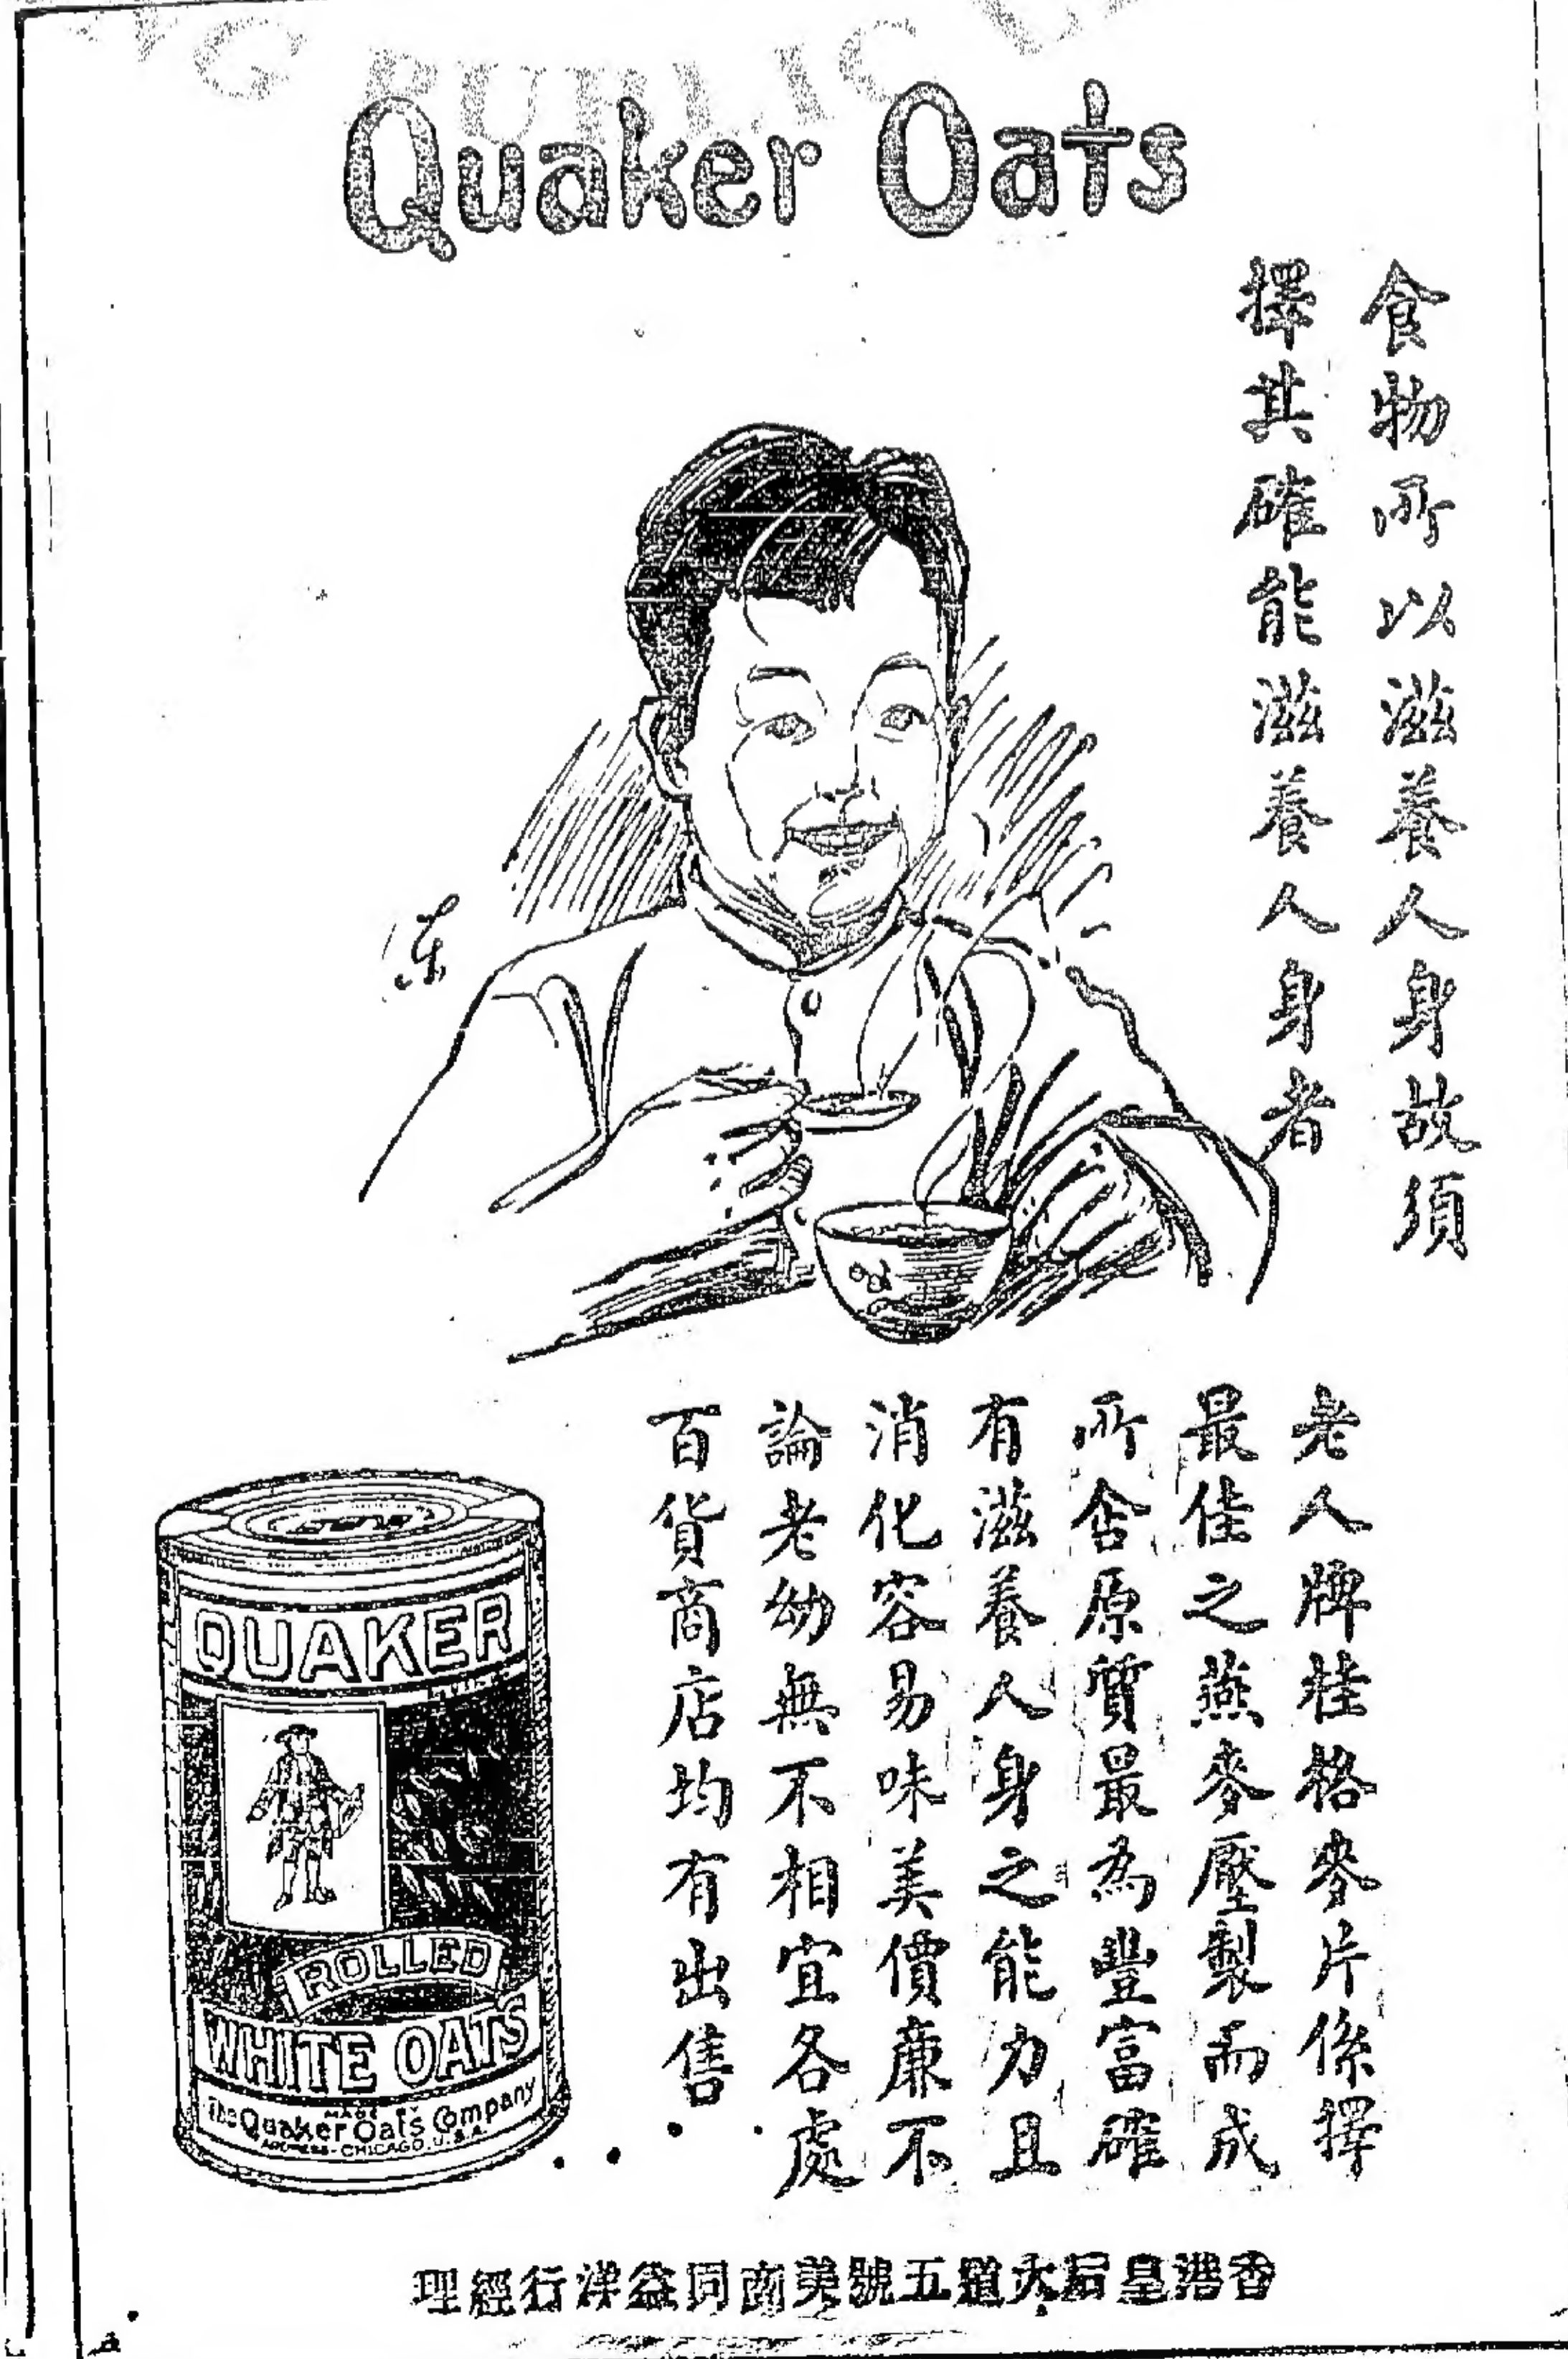 Quaker Oats
食物所以滋養人身故須
擇其確能滋養人身者
老人牌桂格麥片係擇
最佳之燕麥壓製而成
所含原質最為豐富確
有滋養人身之能力且
消化容易味美價廉不
論老幼無不相宜各處
百貨商店均有出售
QUAKER
ROLLED
WHITE OATS
MADE BY
The Quaker Oats Company
ADDRESS-CHICAGO, U.S.A.
香港皇后大道五號美商同益洋行經理